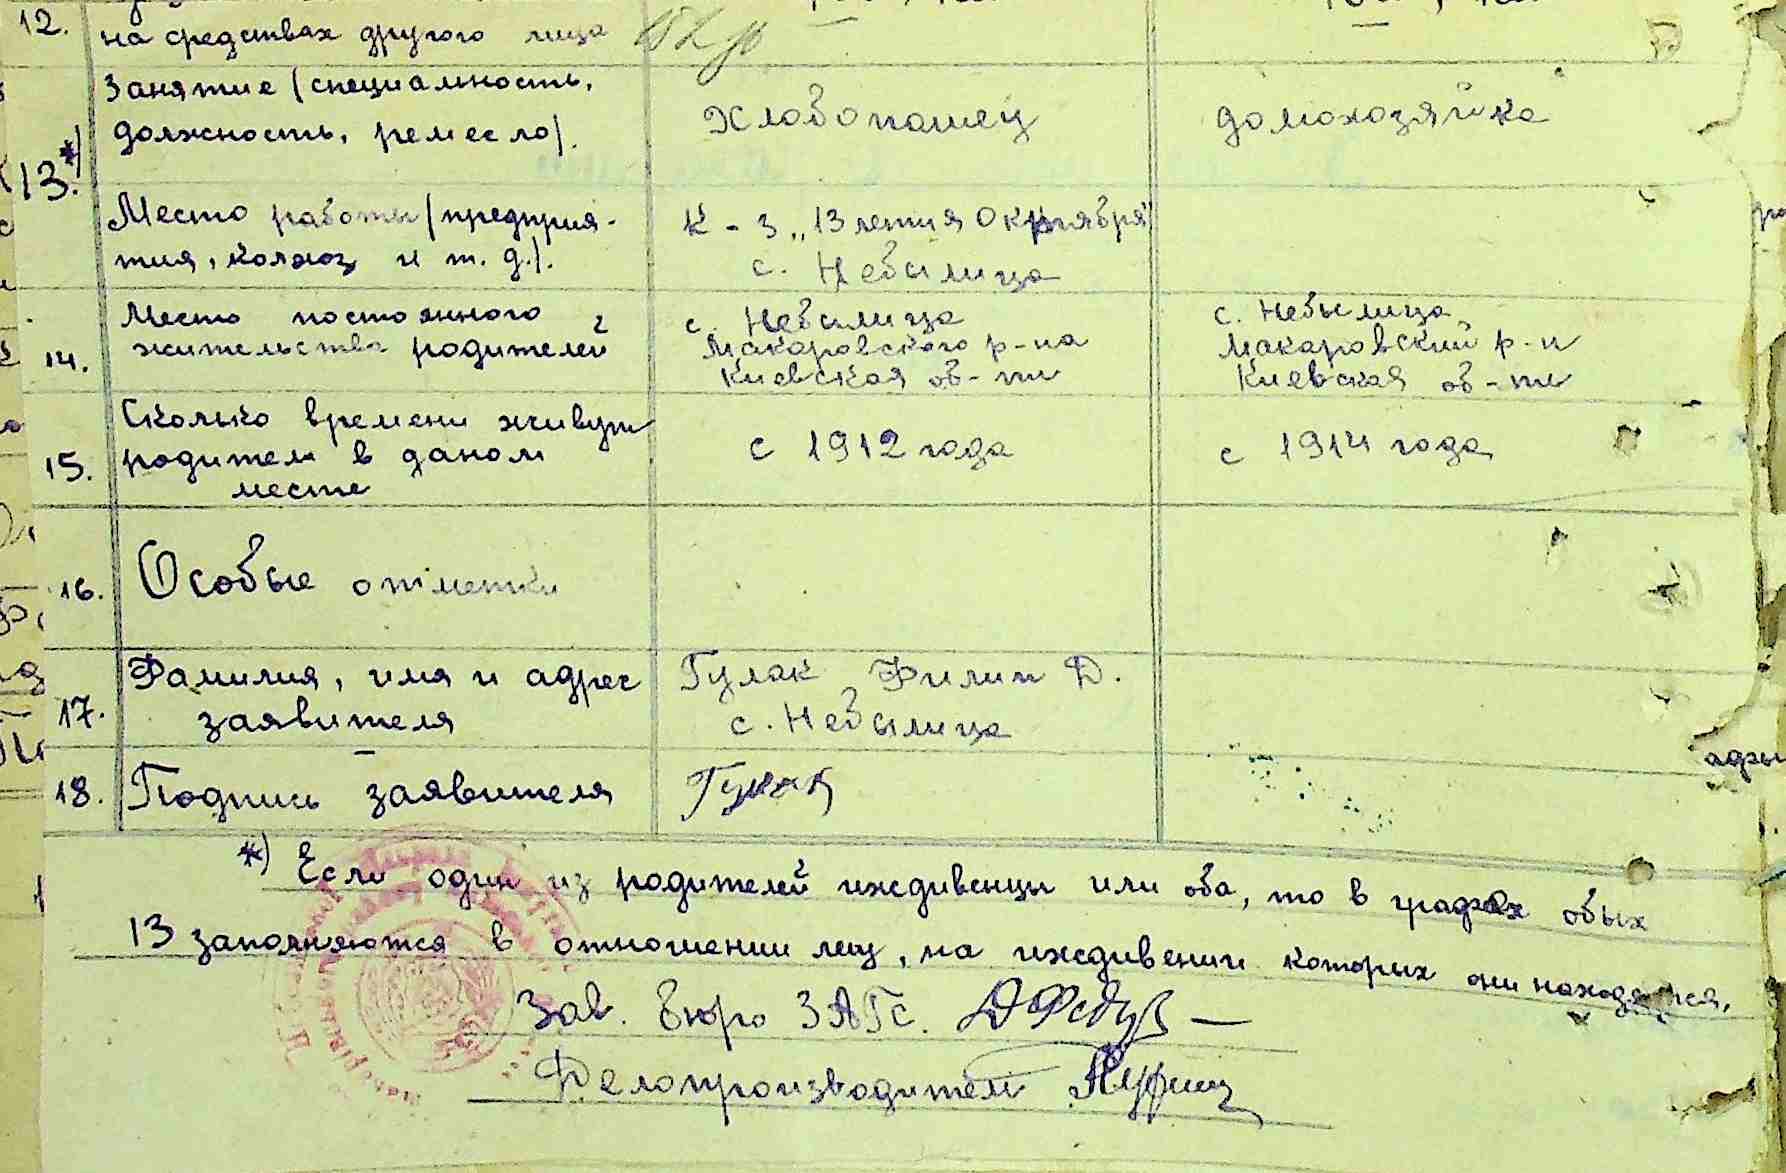 12. на средствах другого лица
Занятие (специальность,
должность, ремесло).
Хлобопашец
домохозяйка
13.*)
Место работы (предприя-
тия, колхоз и т. д.).
К-з „13 летия Октября"
с. Небылица
14. Место постоянного
жительства родителей
с. Небылица
Макаровского р-на
Киевская об-ти
с. Небылица
Макаровский р-н
Киевская об-ти
15. Сколько времени живут
родители в даном
месте
с 1912 года
с 1914 года
16. Особые отметки
17. Фамилия, имя и адрес
заявителя
Гулак Филип Д.
с. Небылица
18. Подпись заявителя
Гулак
*) Если один из родителей иждивенцы или оба, то в графах обых
13 заполняются в отношении лиц, на иждивении которых они находятся.
Зав. Бюро ЗАГС.
Делопроизводитель